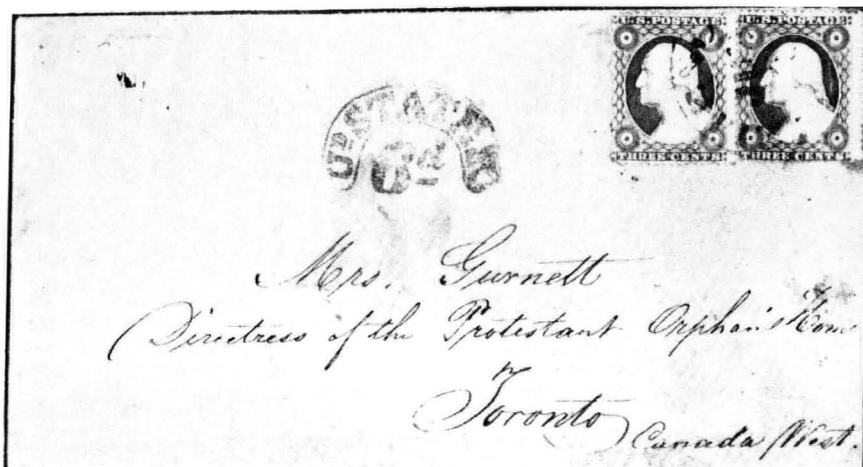 U.S. POSTAGE U.S. POSTAGE
THREE CENTS THREE CENTS
Mrs. Gurnett
Directress of the Protestant Orphan's Hom
Toronto
Canada West.